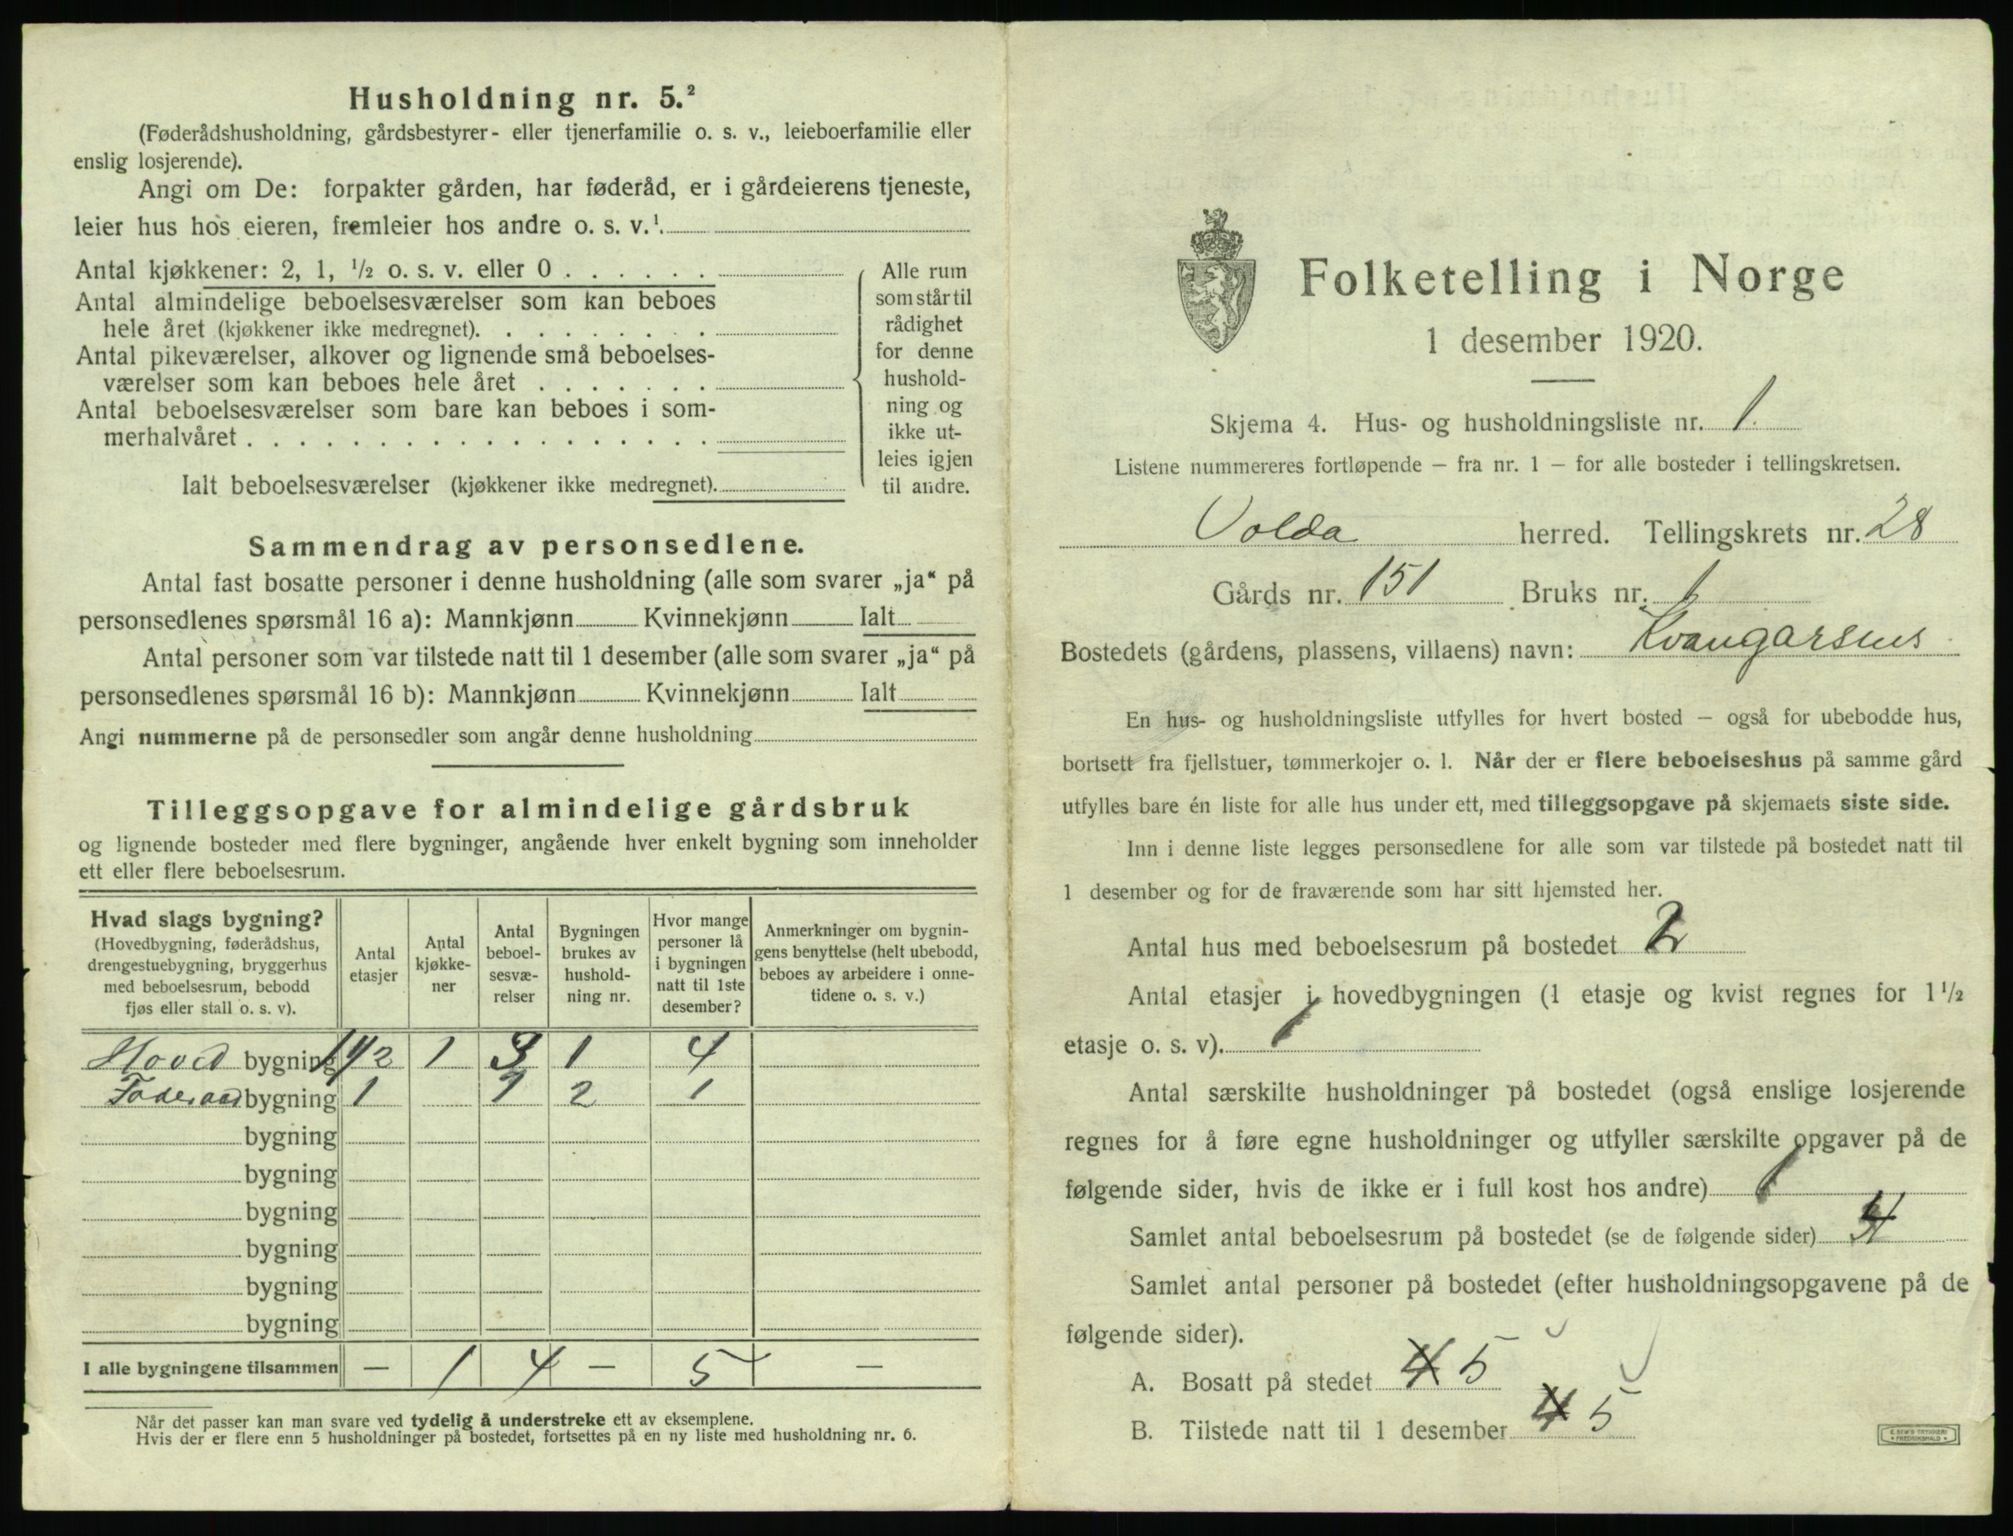 Husholdning nr. 5.²
(Føderådshusholdning, gårdsbestyrer- eller tjenerfamilie o. s. v., leieboerfamilie eller
enslig losjerende).
Angi om De: forpakter gården, har føderåd, er i gårdeierens tjeneste,
leier hus hos eieren, fremleier hos andre o. s. v.¹
Antal kjøkkener: 2, 1, ½ o. s. v. eller 0
Antal almindelige beboelsesværelser som kan beboes
hele året (kjøkkener ikke medregnet).
Antal pikeværelser, alkover og lignende små beboelses-
værelser som kan beboes hele året
Antal beboelsesværelser som bare kan beboes i som-
merhalvåret
Ialt beboelsesværelser (kjøkkener ikke medregnet).
Alle rum
som står til
rådighet
for denne
hushold-
ning og
ikke ut-
leies igjen
til andre.
Sammendrag av personsedlene.
Antal fast bosatte personer i denne husholdning (alle som svarer „ja“ på
personsedlenes spørsmål 16 a): Mannkjønn Kvinnekjønn Ialt
Antal personer som var tilstede natt til 1 desember (alle som svarer „ja“ på
personsedlenes spørsmål 16 b): Mannkjønn Kvinnekjønn Ialt
Angi nummerne på de personsedler som angår denne husholdning
Tilleggsopgave for almindelige gårdsbruk
og lignende bosteder med flere bygninger, angående hver enkelt bygning som inneholder
ett eller flere beboelsesrum.
Hvad slags bygning?
(Hovedbygning, føderådshus,
drengestuebygning, bryggerhus
med beboelsesrum, bebodd
fjøs eller stall o. s. v).
Antal
etasjer
Antal
kjøkke-
ner
Antal
beboel-
sesvæ-
relser
Bygningen
brukes av
hushold-
ning nr.
Hvor mange
personer lå
i bygningen
natt til 1ste
desember?
Anmerkninger om bygnin-
gens benyttelse (helt ubebodd,
beboes av arbeidere i onne-
tidene o. s. v.)
Hoved bygning 1 1/2 1 3 1 4
Føderaad bygning 1 1 2 1
bygning
bygning
bygning
bygning
bygning
bygning
I alle bygningene tilsammen — 1 4 — 5 —
Når det passer kan man svare ved tydelig å understreke ett av eksemplene.
Hvis der er flere enn 5 husholdninger på bostedet, fortsettes på en ny liste med husholdning nr. 6.
Folketelling i Norge
1 desember 1920.
Skjema 4. Hus- og husholdningsliste nr. 1.
Listene nummereres fortløpende – fra nr. 1 – for alle bosteder i tellingskretsen.
Volda herred. Tellingskrets nr. 28
Gårds nr. 151 Bruks nr. 1
Bostedets (gårdens, plassens, villaens) navn:
En hus- og husholdningsliste utfylles for hvert bosted – også for ubebodde hus,
bortsett fra fjellstuer, tømmerkojer o. l. Når der er flere beboelseshus på samme gård
utfylles bare én liste for alle hus under ett, med tilleggsopgave på skjemaets siste side.
Inn i denne liste legges personsedlene for alle som var tilstede på bostedet natt til
1 desember og for de fraværende som har sitt hjemsted her.
Antal hus med beboelsesrum på bostedet 2
Antal etasjer i hovedbygningen (1 etasje og kvist regnes for 1½
etasje o. s. v). 1
Antal særskilte husholdninger på bostedet (også enslige losjerende
regnes for å føre egne husholdninger og utfyller særskilte opgaver på de
følgende sider, hvis de ikke er i full kost hos andre) 1
Samlet antal beboelsesrum på bostedet (se de følgende sider) 4
Samlet antal personer på bostedet (efter husholdningsopgavene på de
følgende sider).
A. Bosatt på stedet 4 5
B. Tilstede natt til 1 desember 4 5